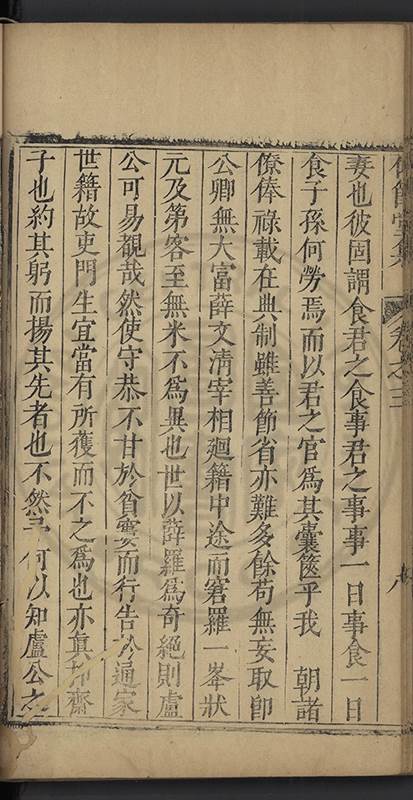 卷之三
八
妻也彼固謂食君之食事君之事事一日事食一日
食子孫何勞焉而以君之官爲其囊篋乎我 朝諸
僚俸祿載在典制雖善節省亦難多餘苟無妄取即
公卿無大富薛文清宰相廻籍中途而窘羅一峯狀
元及第客至無米不爲異也世以薛羅爲奇絕則盧
公可易覯哉然使守恭不甘於貧窶而行告於通家
世籍故吏門生宜當有所獲而不之爲也亦真 齋
子也約其躬而揚其先者也不然予何以知盧公之